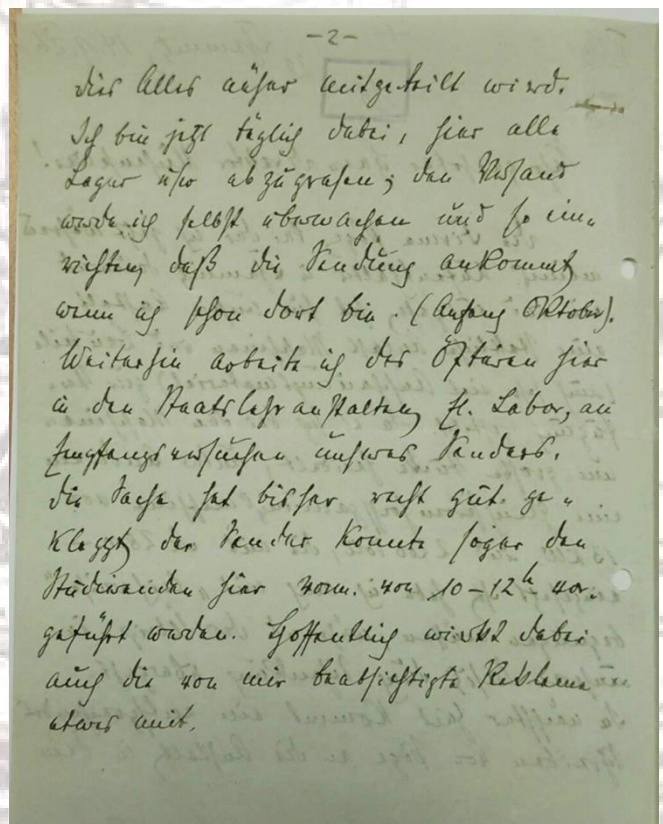 - 2 -
dies Alles näher mitgeteilt wird.
Ich bin jetzt täglich dabei, hier alle
Lager usw abzugrasen; den Versand
werde ich selbst überwachen und so ein-
richten, daß die Sendung ankommt,
wenn ich schon dort bin. (Anfang Oktober).
Weiterhin arbeite ich des Öfteren hier
in den Staatslehranstalten, el. Labor, an
Empfangsversuchen unseres Senders.
Die Sache hat bisher recht gut ge-
klappt, der Sender konnte sogar den
Studierenden hier vorm. von 10-12h vor-
geführt werden. Hoffentlich wirkt dabei
auch die von mir beabsichtigte Reklame
etwas mit.